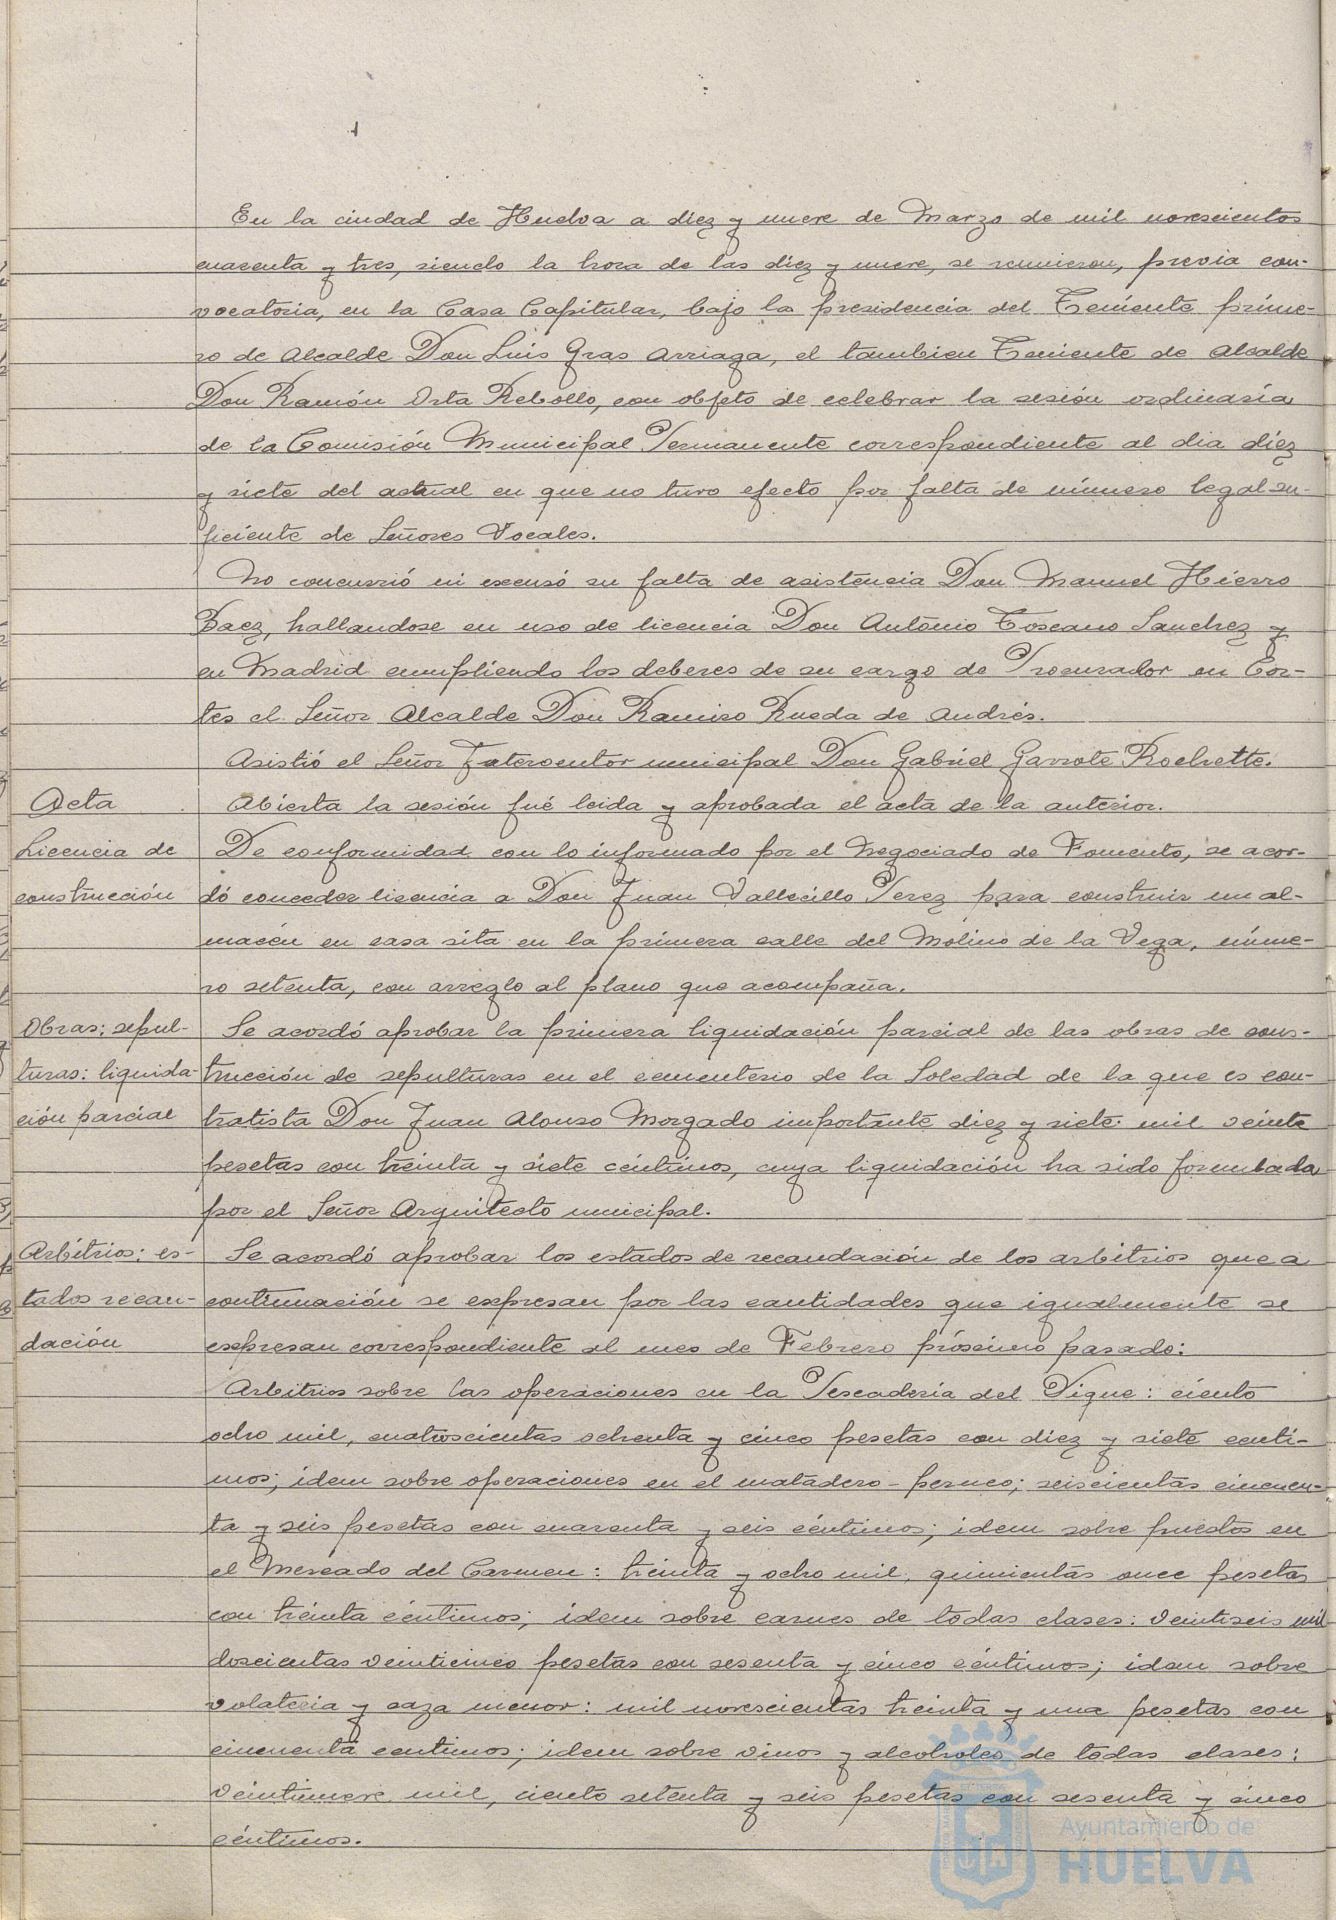 En la ciudad de Huelva a diez y nueve de Marzo de mil novescientos
cuarenta y tres, siendo la hora de las diez y nueve, se reunieron, previa con-
vocatoria, en la Casa Capitular, bajo la presidencia del Teniente prime-
ro de Alcalde Don Luis Gras Arriaga, el tambien Teniente de Alcalde
Don Ramón Orta Rebollo, con objeto de celebrar la sesión ordinaria
de la Comisión Municipal Permanente correspondiente al dia diez
y siete del actual en que no tuvo efecto por falta de número legal su-
ficiente de Señores Vocales.
No concurrió ni excusó su falta de asistencia Don Manuel Hierro
Baez, hallandose en uso de licencia Don António Toscano Sanchez y
en Madrid cumpliendo los deberes de su cargo de Procurador en Cor-
tes el Señor Alcalde Don Ramiro Rueda de Andrés.
Asistió el Señor Interventor municipal Don Gabriel Garrote Rochette.
Acta
Abierta la sesión fué leida y aprobada el acta de la anterior.
Licencia de
construcción
De conformidad con lo informado por el Negociado de Fomento, se acor-
dó conceder licencia a Don Juan Vallecillo Perez para construir un al-
macén en casa sita en la primera calle del Molino de la Vega, núme-
ro setenta, con arreglo al plano que acompaña.
Obras: sepul-
turas: liquida-
ción parcial
Se acordó aprobar la primera liquidación parcial de las obras de cons-
trucción de sepulturas en el cementerio de la Soledad de la que es con-
tratista Don Juan Alonso Morgado importante diez y siete mil veinte
pesetas con treinta y siete céntimos, cuya liquidación ha sido formulada
por el Señor Arquitecto municipal.
Arbitrios: es-
tados recau-
dación
Se acordó aprobar los estados de recaudación de los arbitrios que a
continuación se expresan por las cantidades que igualmente se
expresan correspondiente al mes de Febrero próximo pasado:
Arbitrios sobre las operaciones en la Pescadería del Dique: ciento
ocho mil, cuatroscientas ochenta y cinco pesetas con diez y siete centi-
mos; idem sobre operaciones en el matadero - perneo; seiscientas cincuen-
ta y seis pesetas con cuarenta y seis céntimos; idem sobre puestos en
el Mercado del Carmen: treinta y ocho mil, quinientas once pesetas
con treinta céntimos; idem sobre carnes de todas clases: veintiseis mil
doscientas veinticinco pesetas con sesenta y cinco céntimos; idem sobre
volateria y caza menor: mil novescientas treinta y una pesetas con
cincuenta centimos; idem sobre vinos y alcoholes de todas clases:
veintinueve mil, ciento setenta y seis pesetas con sesenta y cinco
céntimos.
Ayuntamiento de
HUELVA